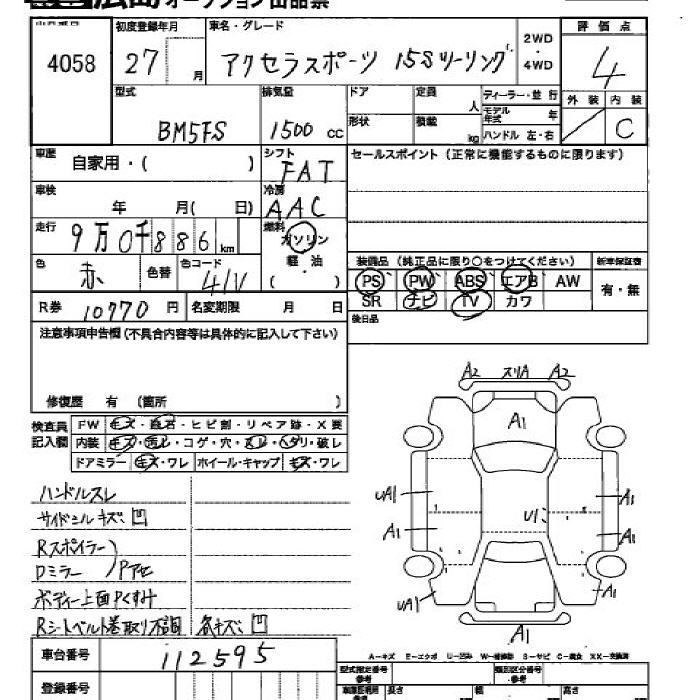 広島 オークション出品票
出品番号 初度登録年月 車名・グレード 評価点
4058 27 月 アクセラスポーツ 15Sツーリング 2WD・4WD 4
型式 排気量 ドア 定員 ディーラー・並行 外装 内装
BM5FS 1500 cc 人 モデル年式 年 C
形状 積載 kg ハンドル 左・右
車歴 シフト セールスポイント(正常に機能するものに限ります)
自家用・( ) FAT
車検 冷房
年 月( 日) AAC
走行 燃料
9万0千886 km ガソリン
色 色替 色コード 軽・油 装備品(純正品に限り○をつけてください) 新車保証書
赤 41V ( ) PS PW ABS エアB AW 有・無
R券 10770 円 名変期限 月 日 SR ナビ TV カワ
注意事項申告欄(不具合内容等は具体的に記入して下さい) 後日品
修復歴 有(箇所 )
検査員記入欄 FW キズ・飛石・ヒビ割・リペア跡・X要
内装 キズ・汚レ・コゲ・穴・スレ・ハガリ・破レ
ドアミラー キズ・ワレ ホイール・キャップ キズ・ワレ
A2 スリA A2
A1
UA1 A1
A1 U1 A1
UA1 A1
A1
ハンドルスレ
サイドシルキズ、凹
Rスポイラー
Dミラー Pアセ
ボディー上面Pくすみ
Rシートベルト巻取り不調 各キズ、凹
A-キズ E-エクボ U-凹み W-補修跡 S-サビ C-腐食 XX-交換済
車台番号 112595
型式指定番号 参考 類別区分番号 参考
登録番号 車庫証明用 参考 長さ 幅 高さ